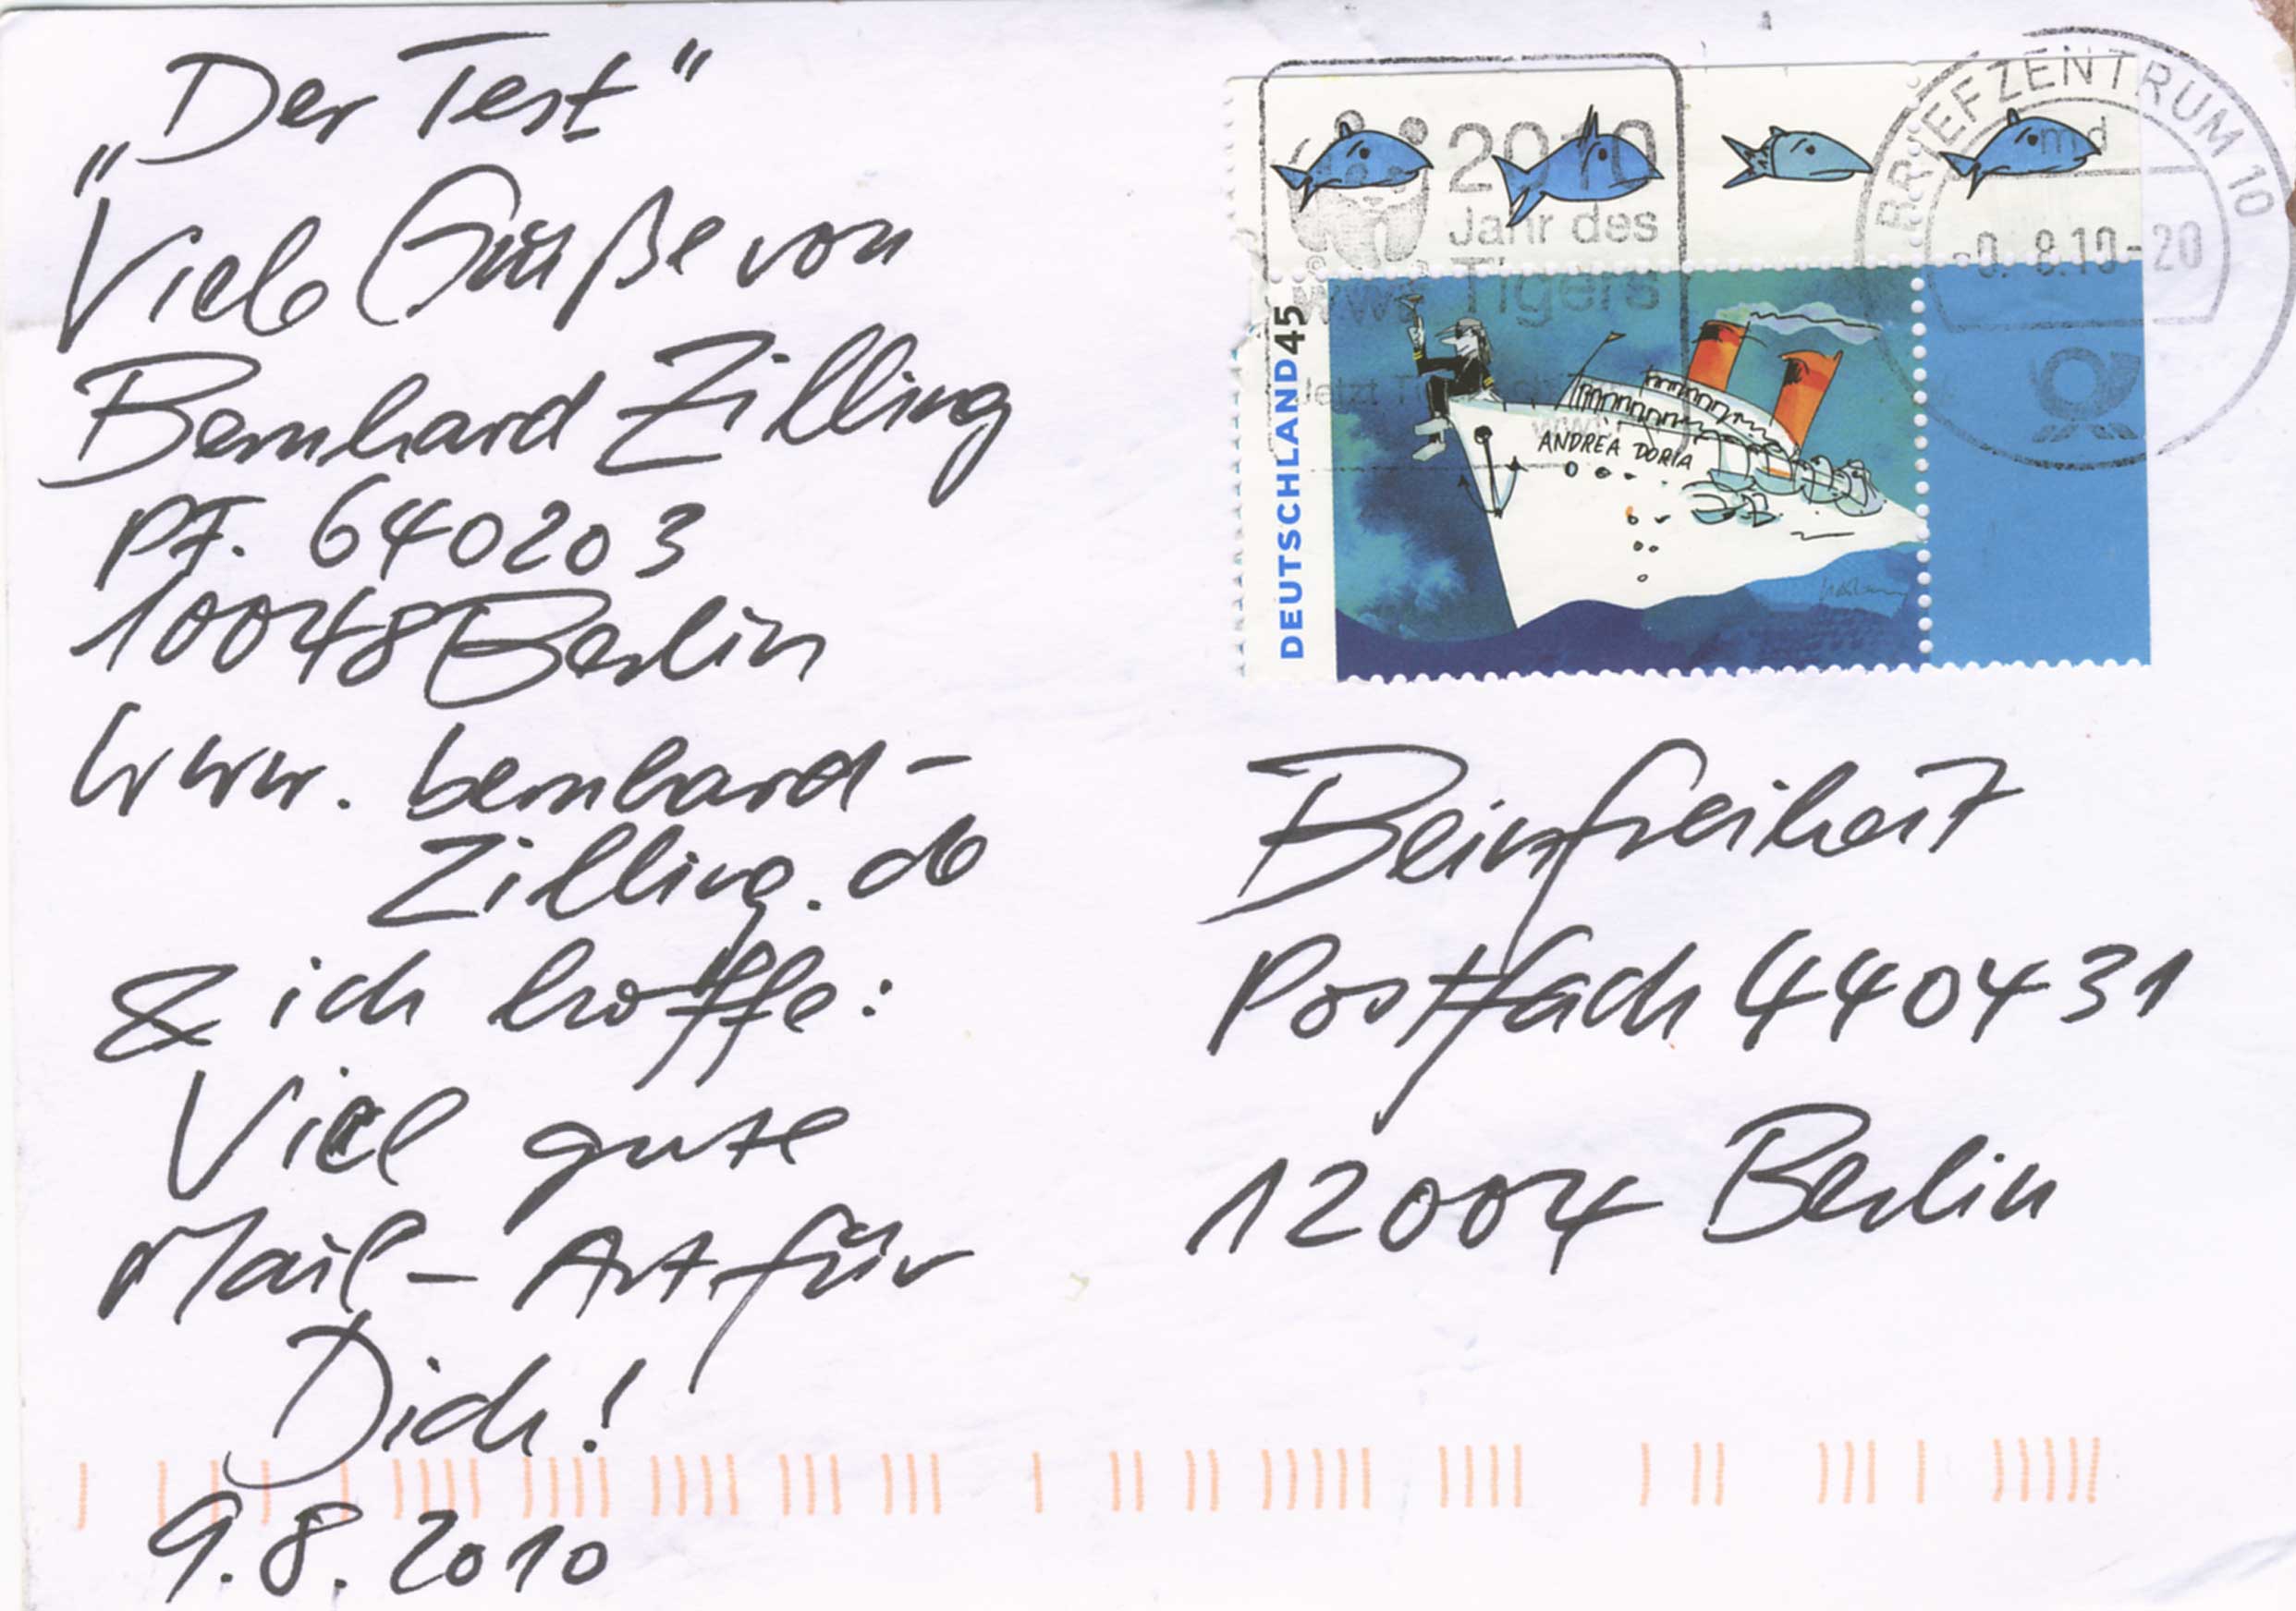 „Der Test“
Viele Grüße von
Bernhard Zilling
PF. 640203
10048 Berlin
www. bernhard-
Zilling.de
& ich hoffe:
Viel gute
Mail-Art für
Dich!
9.8.2010
2010
Jahr des
Tigers
WWF
Jetzt
BRIEFZENTRUM 10
md
8.10-20
DEUTSCHLAND 45
ANDREA DORIA
Beinfreiheit
Postfach 440431
12004 Berlin